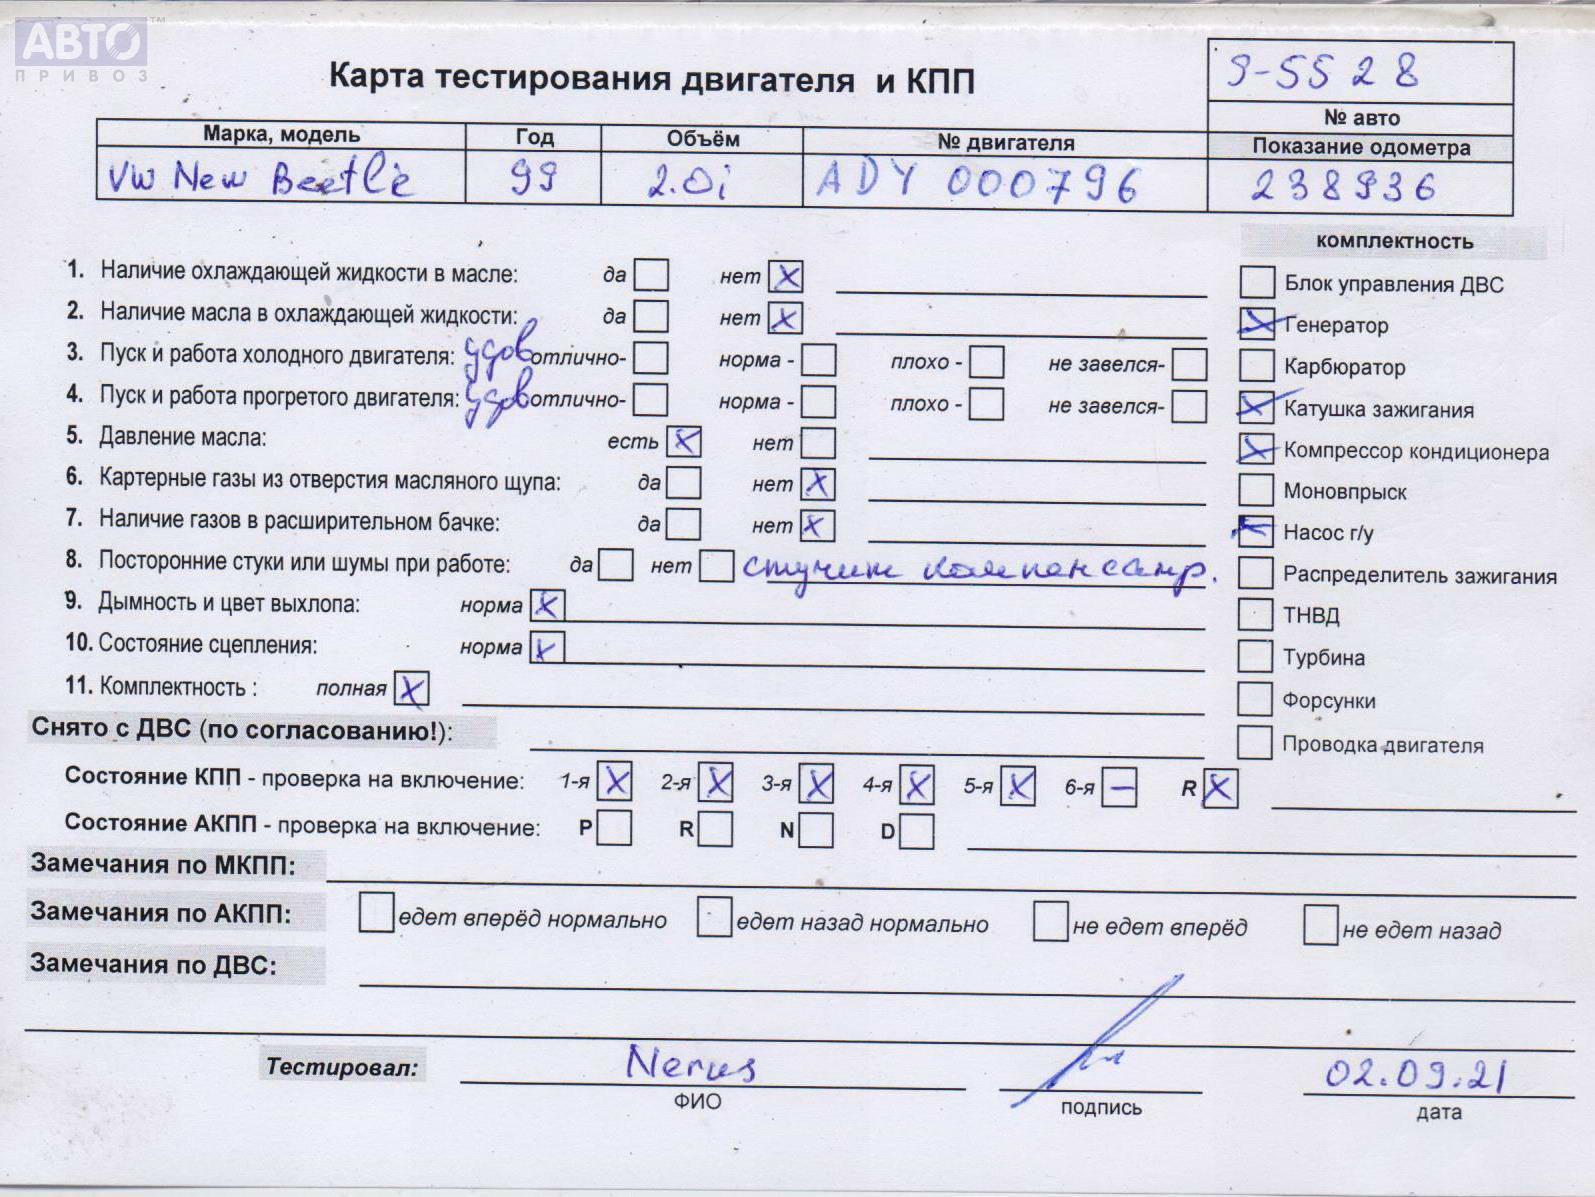 АВТО™
ПРИВОЗ
Карта тестирования двигателя и КПП
9-5528
№ авто
Марка, модель Год Объём № двигателя Показание одометра
VW New Beetle 99 2.0i ADY 000796 238936
комплектность
1. Наличие охлаждающей жидкости в масле: да нет X
Блок управления ДВС
2. Наличие масла в охлаждающей жидкости: да нет X
X Генератор
3. Пуск и работа холодного двигателя: удов отлично- норма - плохо - не завелся-
Карбюратор
4. Пуск и работа прогретого двигателя: удов отлично- норма - плохо - не завелся-
X Катушка зажигания
5. Давление масла: есть X нет
X Компрессор кондиционера
6. Картерные газы из отверстия масляного щупа: да нет X
Моновпрыск
7. Наличие газов в расширительном бачке: да нет X
X Насос г/у
8. Посторонние стуки или шумы при работе: да нет стучит компенсатр.
Распределитель зажигания
9. Дымность и цвет выхлопа: норма X
ТНВД
10. Состояние сцепления: норма X
Турбина
11. Комплектность : полная X
Форсунки
Снято с ДВС (по согласованию!):
Проводка двигателя
Состояние КПП - проверка на включение: 1-я X 2-я X 3-я X 4-я X 5-я X 6-я — R X
Состояние АКПП - проверка на включение: P R N D
Замечания по МКПП:
Замечания по АКПП: едет вперёд нормально едет назад нормально не едет вперёд не едет назад
Замечания по ДВС:
Тестировал: Nerus 02.09.21
ФИО подпись дата